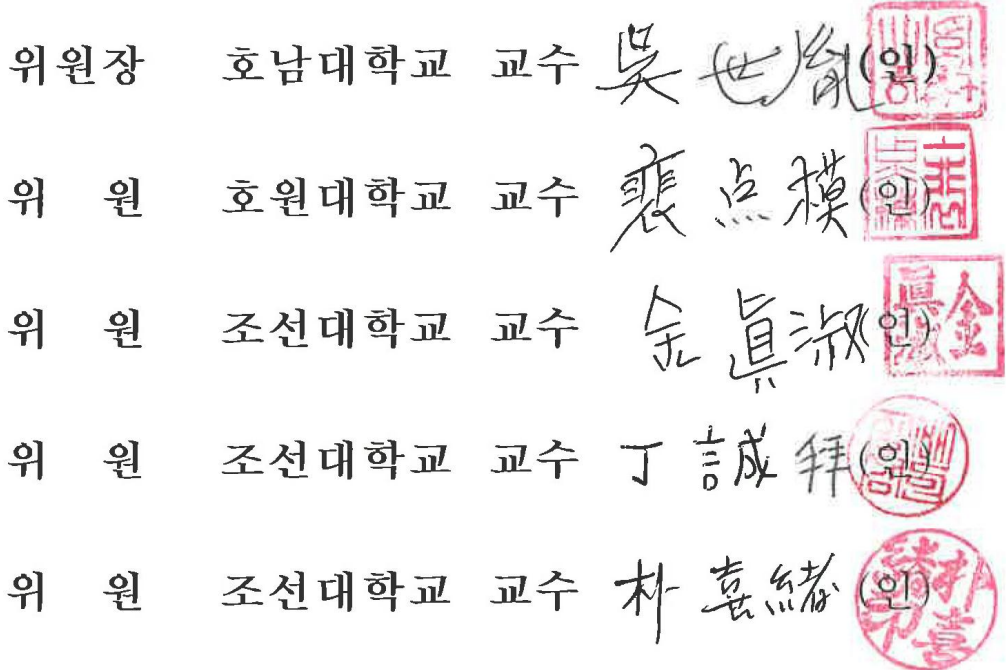 위원장 호남대학교 교수 吳世胤 (인)
위 원 호원대학교 교수 裵点模 (인)
위 원 조선대학교 교수 金眞淑 (인)
위 원 조선대학교 교수 丁誠拜 (인)
위 원 조선대학교 교수 朴喜緖 (인)